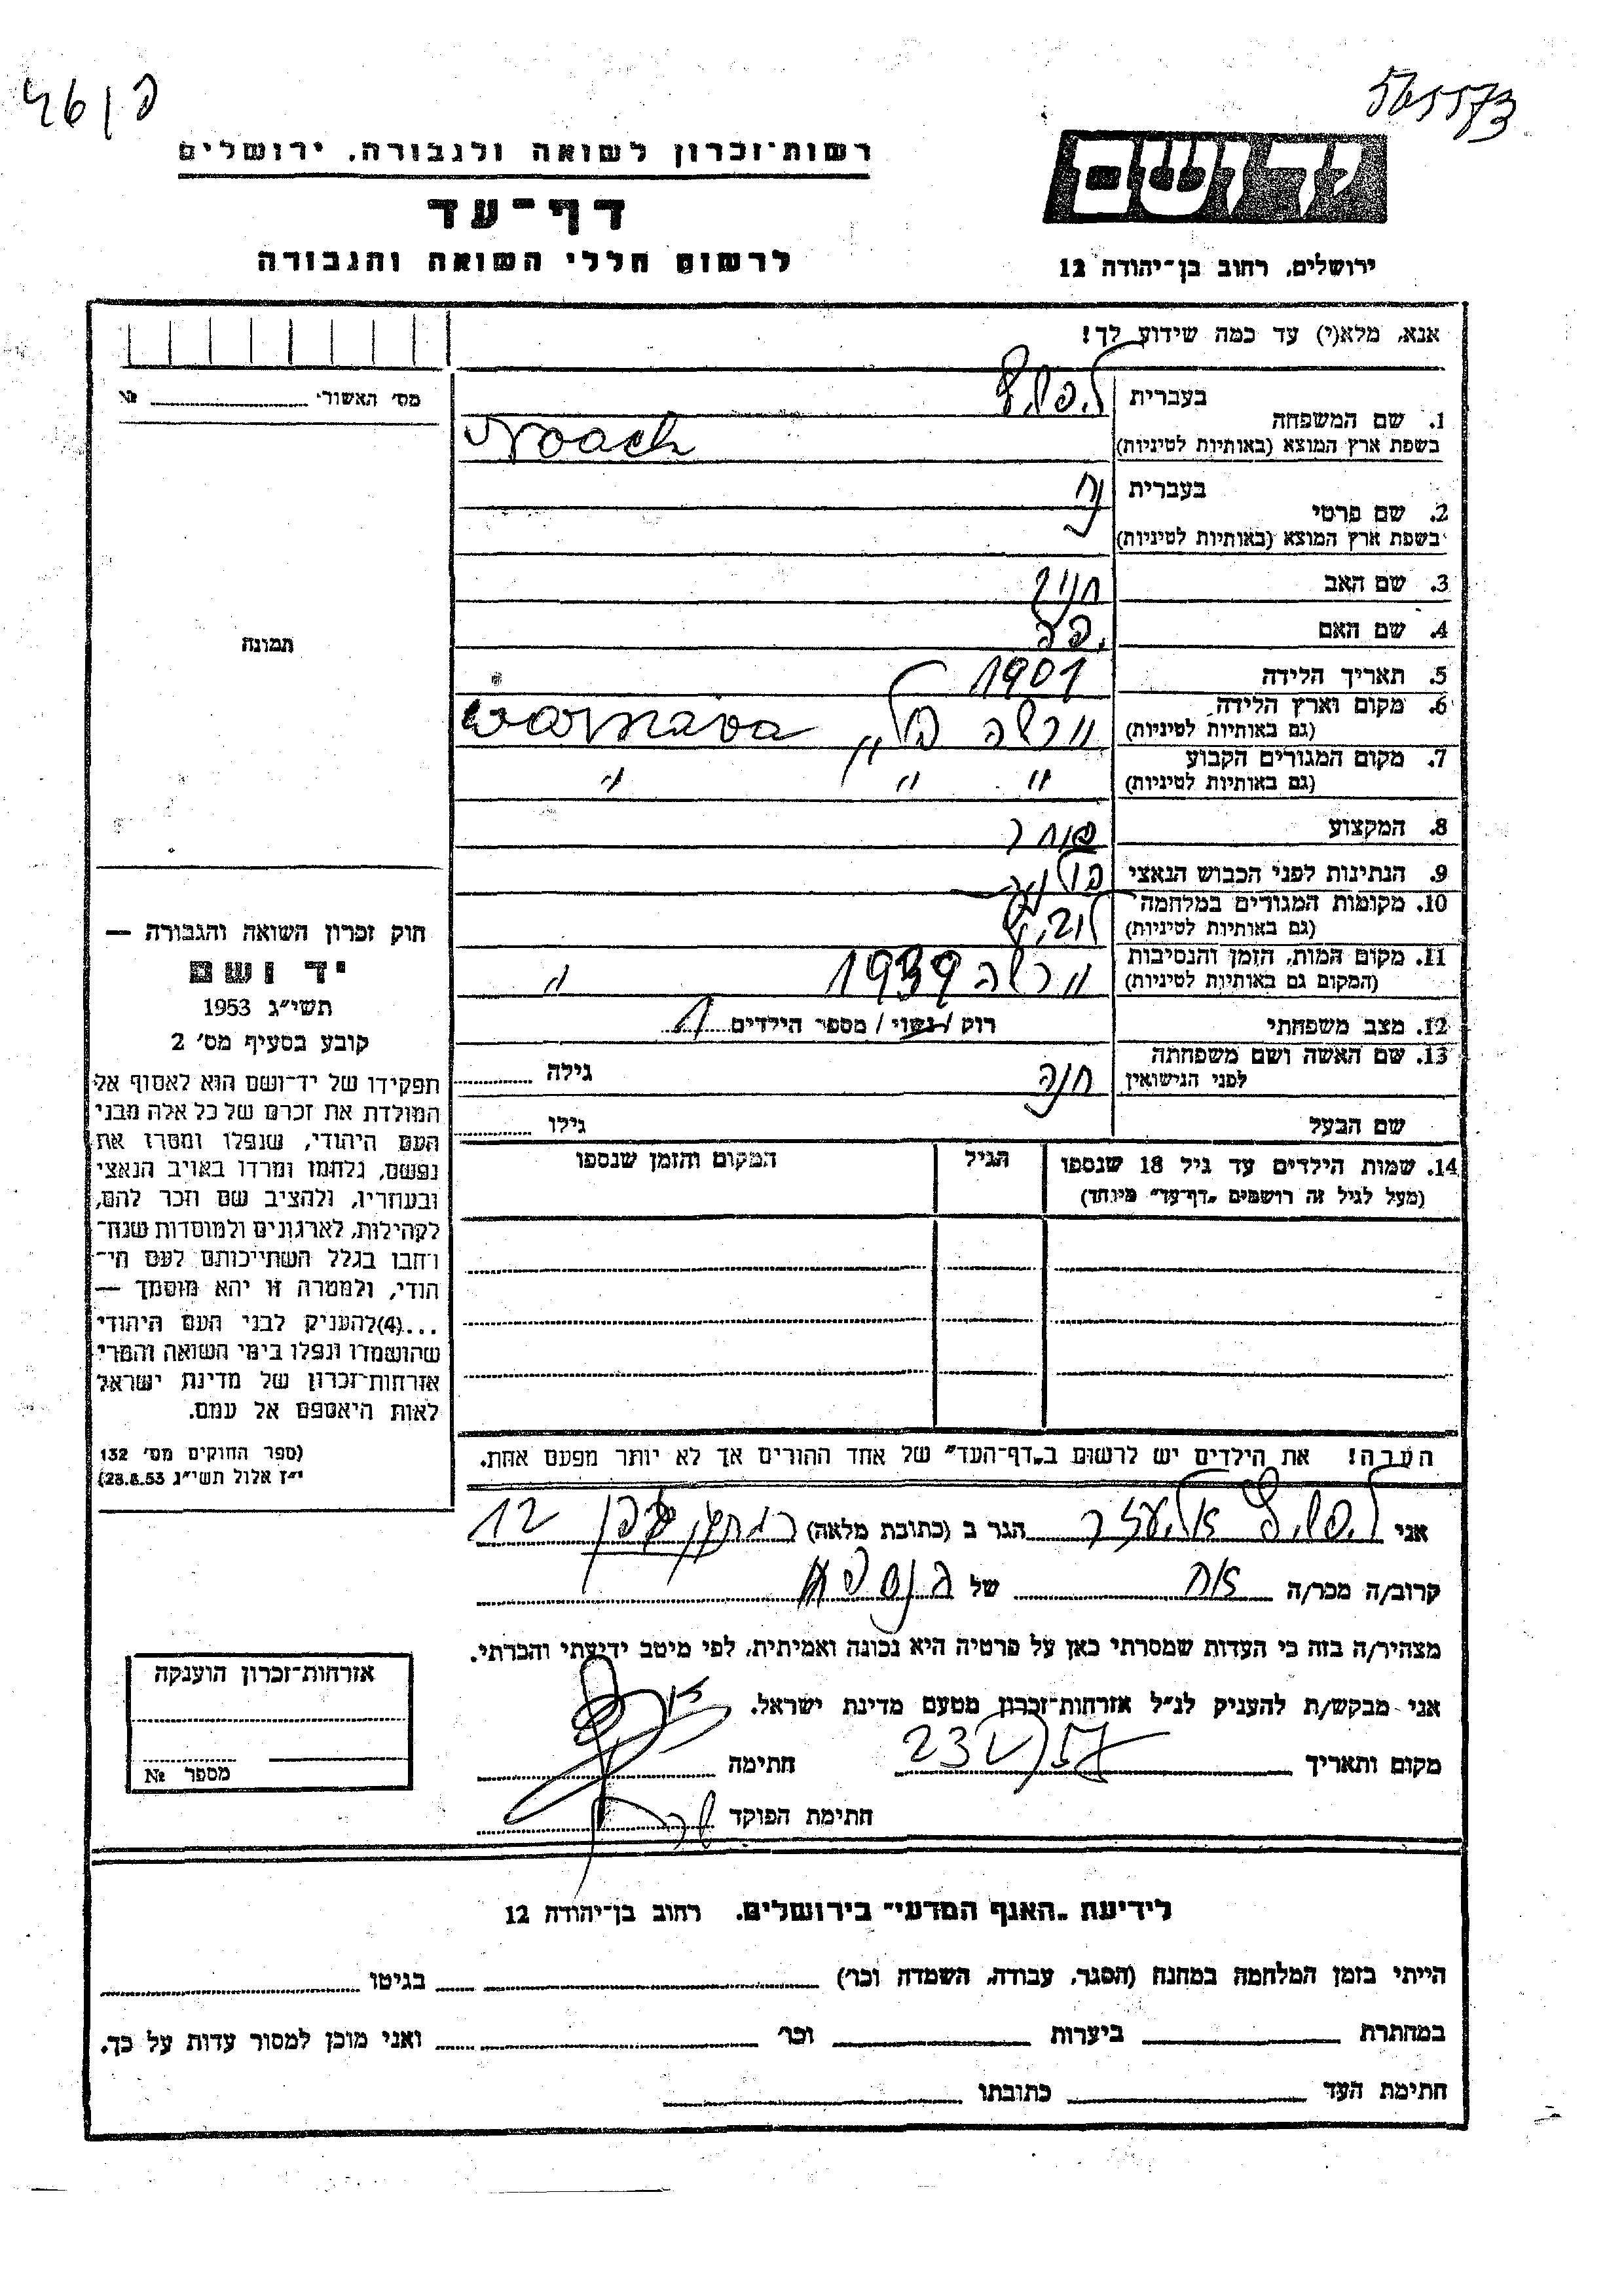 פ / 46ל
565573
רשות־זכרון לשואה ולגבורה. ירושלים
דף־עד
לרשום חללי השואה והגבורה
יד ושם
ירושלים, רחוב בן־יהודה 12
אנא, מלא(י) עד כמה שידוע לך!
מס' האשור №
1. שם המשפחה
בעברית
בשפת ארץ המוצא (באותיות לטיניות) Noach
2. שם פרטי
בעברית נח
בשפת ארץ המוצא (באותיות לטיניות)
3. שם האב
4. שם האם
5. תאריך הלידה 1901
6. מקום וארץ הלידה ורשה פולין Warszawa
(גם באותיות לטיניות)
7. מקום המגורים הקבוע " " "
(גם באותיות לטיניות)
8. המקצוע סוחר
9. הנתינות לפני הכבוש הנאצי פולניה
10. מקומות המגורים במלחמה
(גם באותיות לטיניות)
11. מקום המות, הזמן והנסיבות ורשה 1939 "
(המקום גם באותיות לטיניות)
12. מצב משפחתי רוק / נשוי / מספר הילדים 1
13. שם האשה ושם משפחתה
לפני הנישואין חנה גילה
שם הבעל גילו
14. שמות הילדים עד גיל 18 שנספו
(מעל לגיל זה רושמים „דף־עד" מיוחד)
הגיל
המקום והזמן שנספו
תמונה
חוק זכרון השואה והגבורה —
יד ושם
תשי"ג 1953
קובע בסעיף מס' 2
תפקידו של יד־ושם הוא לאסוף אל
המולדת את זכרם של כל אלה מבני
העם היהודי, שנפלו ומסרו את
נפשם, נלחמו ומרדו באויב הנאצי
ובעוזריו, ולהציב שם וזכר להם,
לקהילות, לארגונים ולמוסדות שנח־
רחבו בגלל השתייכותם לעם הי־
הודי, ולמטרה זו יהא מוסמך —
...(4)להעניק לבני העם היהודי
שהושמדו ונפלו בימי השואה והמרי
אזרחות־זכרון של מדינת ישראל
לאות היאספם אל עמם.
(ספר החוקים מס' 132
י"ז אלול תשי"ג 28.8.53)
הערה! את הילדים יש לרשום ב„דף־העד" של אחד ההורים אך לא יותר מפעם אחת.
אני אליעזר הגר ב (כתובת מלאה) 12
קרוב/ה מכר/ה אח של הנספה
מצהיר/ה בזה כי העדות שמסרתי כאן על פרטיה היא נכונה ואמיתית, לפי מיטב ידיעתי והכרתי.
אני מבקש/ת להעניק לנ"ל אזרחות־זכרון מטעם מדינת ישראל.
מקום ותאריך 23 V 57 חתימה
חתימת הפוקד
אזרחות־זכרון הוענקה
מספר №
לידיעת „האגף המדעי" בירושלים. רחוב בן־יהודה 12
הייתי בזמן המלחמה במחנה (הסגר, עבודה, השמדה וכו') בגיטו
במחתרת ביערות וכו' ואני מוכן למסור עדות על כך.
חתימת העד כתובתו